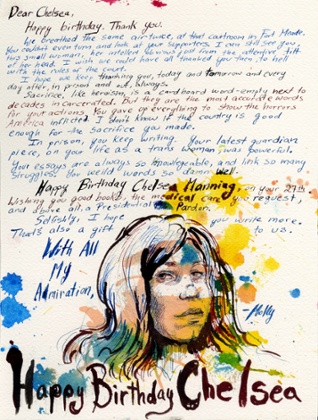 Dear Chelsea,
Happy birthday. Thank you.
We breathed the same air twice, at that courtroom in Fort Meade.
You couldn't even turn and look at your supporters. I can still see you
this small woman,
of her head. I wish we could have all thanked you then, to hell
with the rules of the court.
I hope we keep thanking you, today and tomorrow and every
day after, in prison and out, always.
Sacrifice, like heroism, is a cardboard word-empty next to
decades incarcerated. But they are the most accurate words
for your actions. You gave up everything to show the horrors
America inflicted. I don't know if the country is good
enough for the sacrifice you made.
In person, you keep writing. Your latest guardian
piece, on your life as a trans woman was powerful.
Your essays are always so knowledgeable, and link so many
struggles. You weild words so damn well.
Happy Birthday Chelsea Manning, on your 27th
Wishing you good books, the medical care you request,
and above all, a Presidential Pardon.
Selfishly, I hope you write more.
That's also a gift to us.
With All
My
Admiration,
-Molly
Happy Birthday Chelsea